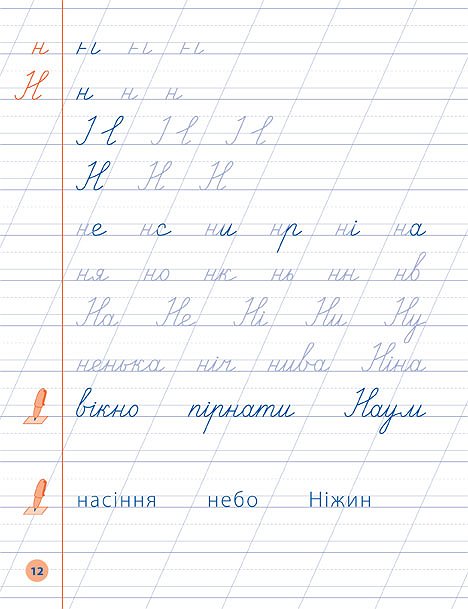 н
Н н н н
Н Н Н
не нс ни нр ні на
ня но нк нь нн нв
На Не Ні Ни Ну
ненька ніч нива Ніна
вікно пірнати Наум
насіння небо Ніжин
12